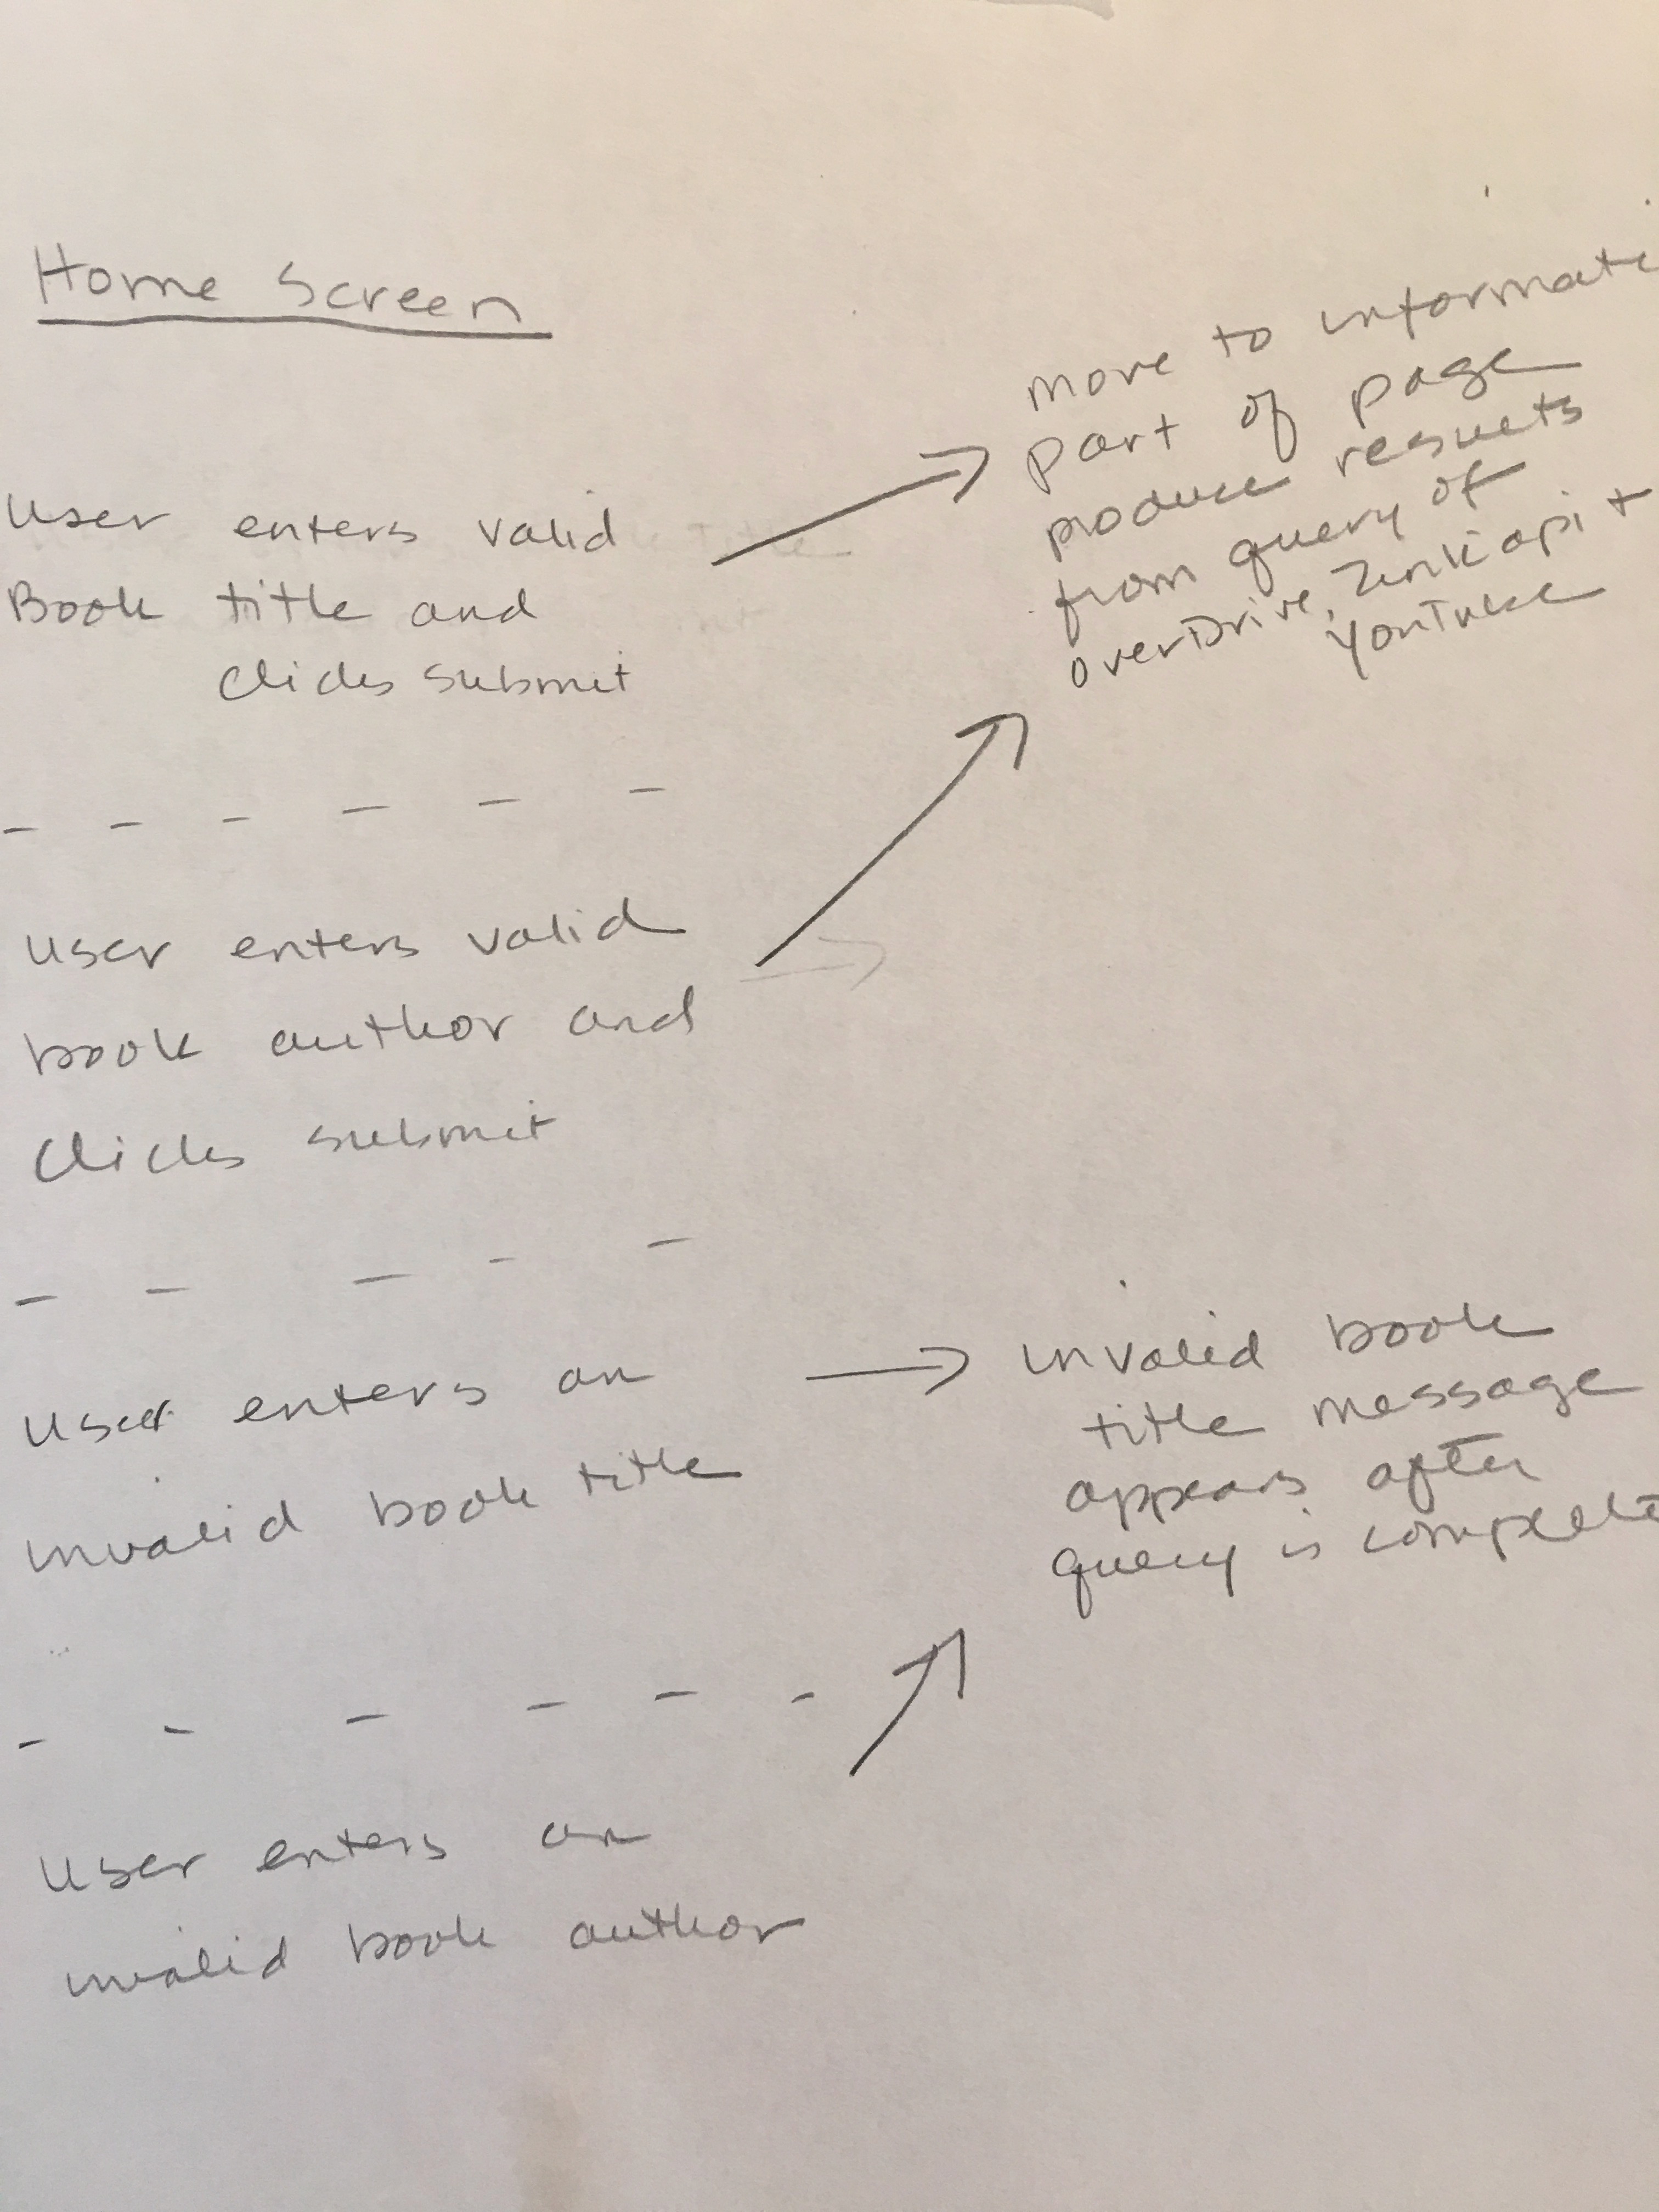 Home Screen
User enters valid
Book title and
clicks submit
move to informati
part of page
produce results
from query of
overDrive, Zinki api +
YouTube
User enters valid
book author and
clicks submit
User enters an
invalid book title
invalid book
title message
appears after
query is complete
User enters an
invalid book author